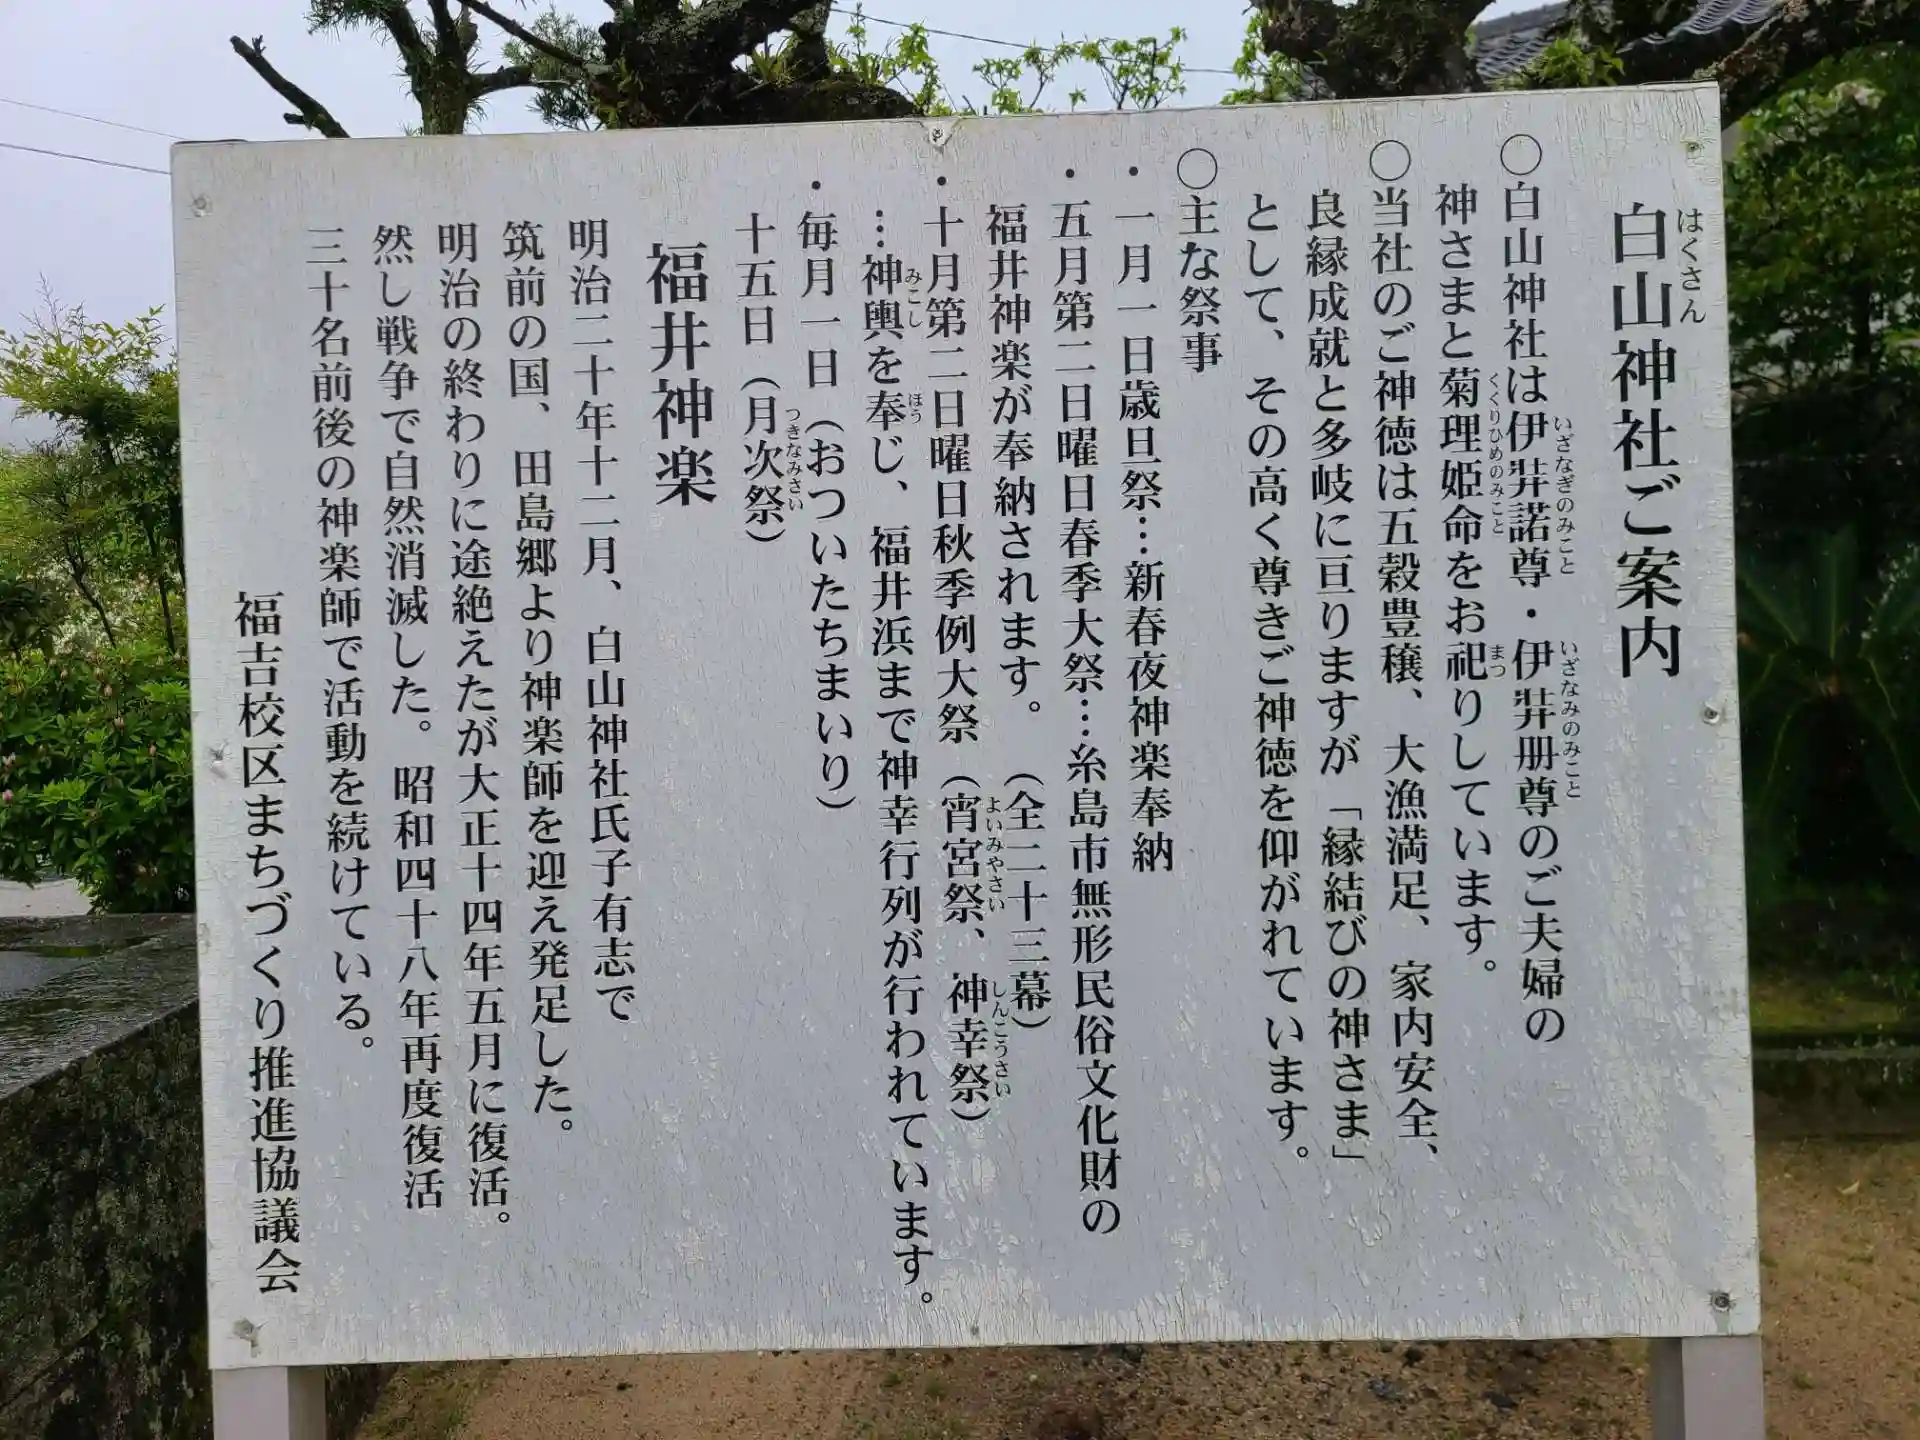 白山神社ご案内
○白山神社は伊弉諾尊・伊弉冊尊のご夫婦の
神さまと菊理姫命をお祀りしています。
○当社のご神徳は五穀豊穣、大漁満足、家内安全、
良縁成就と多岐に亘りますが「縁結びの神さま」
として、その高く尊きご神徳を仰がれています。
○主な祭事
・一月一日歳旦祭…新春夜神楽奉納
・五月第二日曜日春季大祭…糸島市無形民俗文化財の
福井神楽が奉納されます。（全二十三幕）
・十月第二日曜日秋季例大祭（宵宮祭、神幸祭）
…神輿を奉じ、福井浜まで神幸行列が行われています。
・毎月一日（おついたちまいり）
十五日（月次祭）
福井神楽
明治二十年十二月、白山神社氏子有志で
筑前の国、田島郷より神楽師を迎え発足した。
明治の終わりに途絶えたが大正十四年五月に復活。
然し戦争で自然消滅した。昭和四十八年再度復活
三十名前後の神楽師で活動を続けている。
福吉校区まちづくり推進協議会
はくさん
いざなぎのみこと
いざなみのみこと
くくりひめのみこと
まつ
よいみやさい
しんこうさい
みこし
ほう
つきなみさい